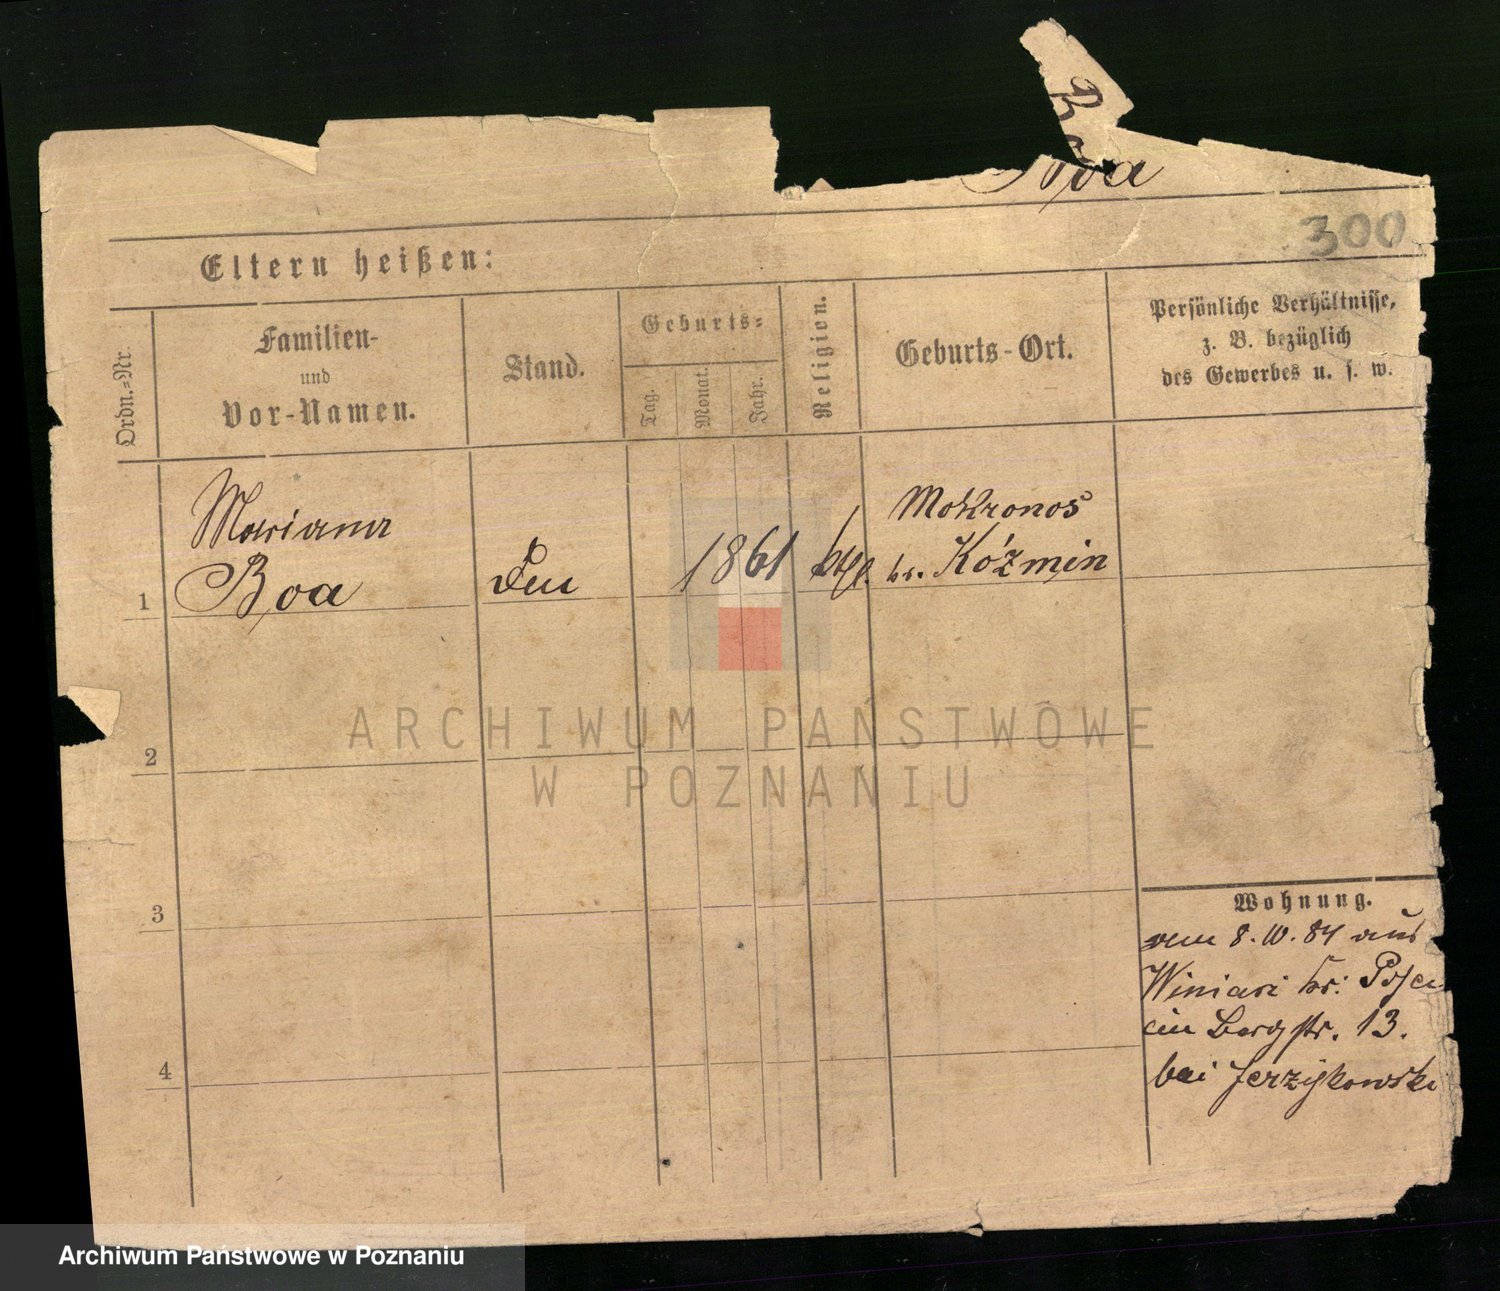 Boa
Boa
300
Eltern heißen:
Ordn.=Nr.
Familien-
und
Vor-Namen.
Stand.
Geburts=
Tag.
Monat.
Jahr.
Religion.
Geburts-Ort.
Persönliche Verhältnisse,
z. B. bezüglich
des Gewerbes u. s. w.
1
Marianna
Boa
1861
ktl.
Mokronos
kr. Kóżmin
2
3
4
Wohnung.
8. 10. 84 aus
Winiari kr: Posen
in Bergstr. 13.
bei Jerzykowski
ARCHIWUM PAŃSTWOWE
W POZNANIU
Archiwum Państwowe w Poznaniu